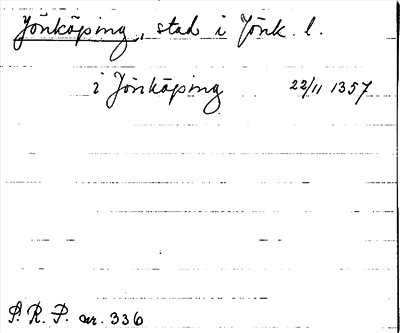 Jönköping, stad i Jönk. l.
i Jönköping 22/11 1357
S. R. P. nr. 336